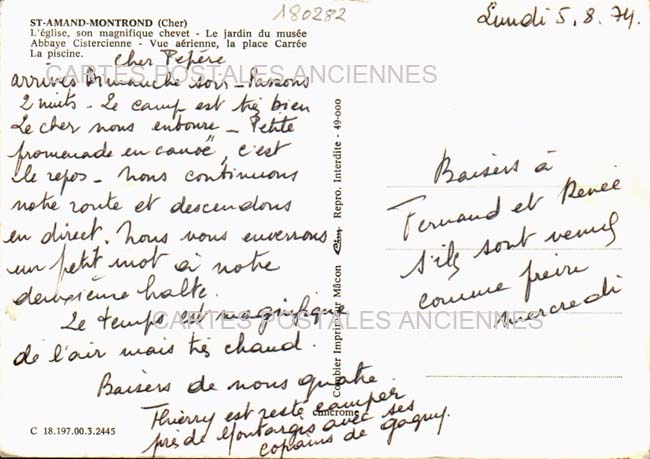 ST-AMAND-MONTROND (Cher)
L'église, son magnifique chevet - Le jardin du musée
Abbaye Cistercienne - Vue aérienne, la place Carrée
La piscine.
180282
Lundi 5.8.74.
Cher Pépère
arrivés Dimanche soir - Passons
2 nuits - Le camp est très bien
Le cher nous entoure - Petite
promenade en canoë, c'est
le repos - Nous continuons
notre route et descendons
en direct. Nous vous enverrons
un petit mot à notre
deuxième halte.
Le temps est magnifique
de l'air mais très chaud.
Baisers de nous quatre.
Thierry est resté camper
près de Montargis avec ses
copains de gagny.
Baisers à
Fernand et Renée
s'ils sont venus
comme prévu
mercredi
Combier Imprimeur Mâcon Repro. Interdite - 49-000
cimcrome
C 18.197.00.3.2445
CARTES POSTALES ANCIENNES
CARTES POSTALES ANCIENNES